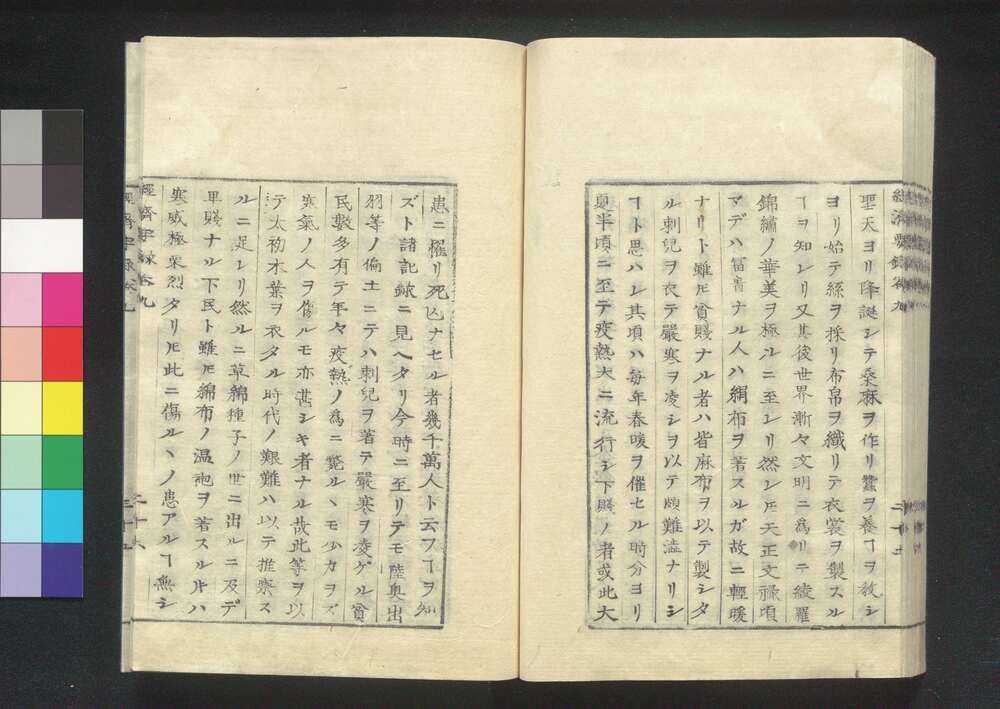 聖天ヨリ降誕シテ桑麻ヲ作リ蠶ヲ養ヿヲ敎シ
ヨリ始テ絲ヲ採リ布帛ヲ織リテ衣裳ヲ製スル
ヿヲ知レリ又其後世界漸々文明ニ爲リテ綾羅
錦繡ノ華美ヲ極ルニ至レリ然シ𪜈天正文祿頃
マデハ冨貴ナル人ハ絹布ヲ著スルガ故ニ輕暖
ナリト雖𪜈貧賤ナル者ハ皆麻布ヲ以テ製シタ
ル刺兒ヲ衣テ嚴寒ヲ凌シヲ以テ頗難澁ナリシ
ヿト思ハレ其頃ハ毎年春暖ヲ催セル時分ヨリ
夏半頃ニ至テ疫熱大ニ流行シ下賤ノ者或此大
患ニ罹リ死亾ナセル者幾千萬人ト云フヿヲ知
ズト諸記録ニ見ヘタリ今時ニ至リテモ陸奥出
羽等ノ偏土ニテハ刺兒ヲ著テ嚴寒ヲ凌ゲル貧
民數多有テ年々疫熱ノ爲ニ斃ルヽモ少カラズ
寒氣ノ人ヲ傷ルモ亦甚シキ者ナル哉此等ヲ以
テ太初木葉ヲ衣タル時代ノ艱難ハ以テ推察ス
ルニ足レリ然ルニ草綿種子ノ世ニ出ルニ及デ
卑賤ナル下民ト雖𪜈綿布ノ温袍ヲ著スル片ハ
寒威極栗烈タリ𪜈此ニ傷ルヽノ患アルヿ無シ